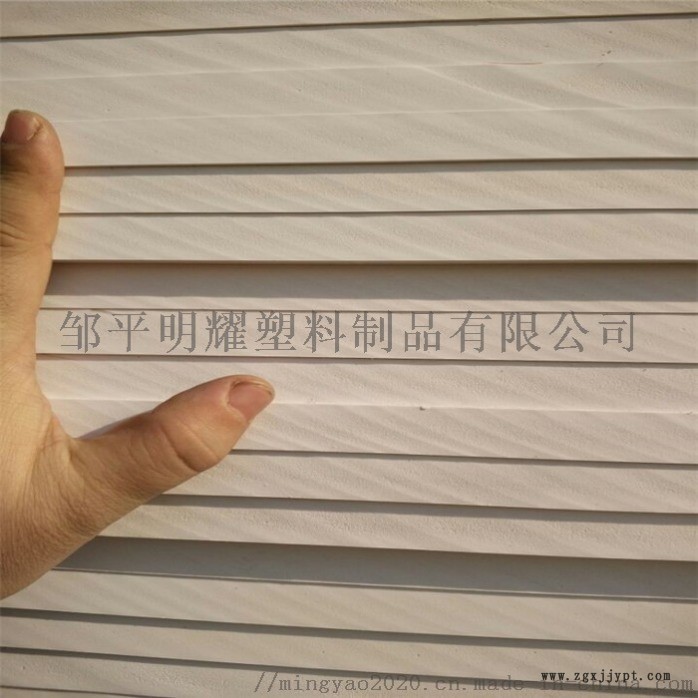 邹平明耀塑料制品有限公司
//mingyao2020.cn.china.cn
www.zgxjjypt.com